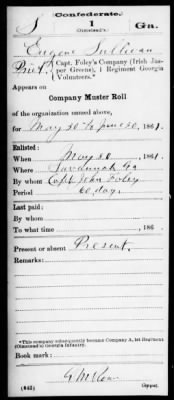 Confederate.
S 1 Ga.
(Olmstead's)
Eugene Sullivan
Privt, Capt. Foley's Company (Irish Jas-
per Greens), 1 Regiment Georgia
Volunteers.*
Appears on
Company Muster Roll
of the organization named above,
for May 30 to June 30, 1861.
Enlisted:
When May 30, 1861.
Where Savannah Ga
By whom Capt. John Foley
Period 60 days
Last paid:
By whom
To what time , 186 .
Present or absent Present.
Remarks:
*This company subsequently became Company A, 1st Regiment
(Olmstead's) Georgia Infantry.
Book mark:
(642) Copyist.